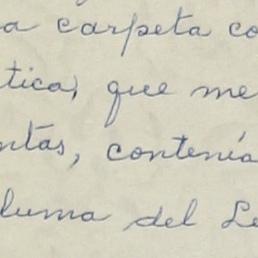 a carpeta co
tica, que me
ntas, contenía
luma del Le